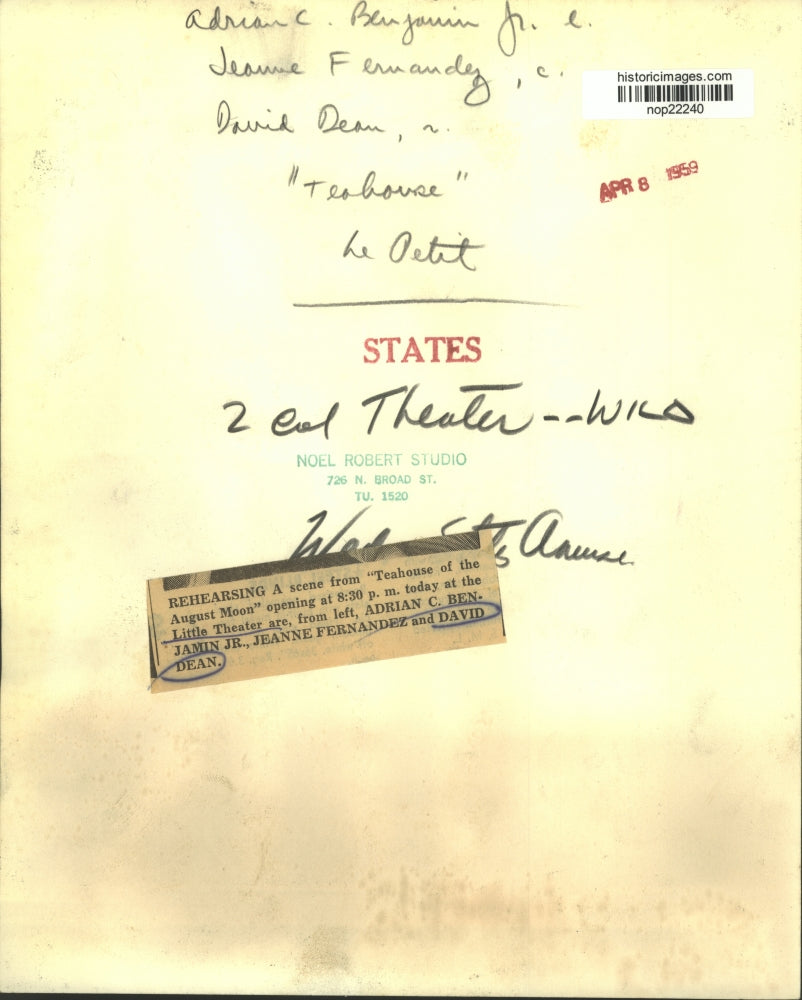 Adrian C. Benjamin Jr. l.
Jeanne Fernandez, c.
historicimages.com
nop22240
David Dean, r.
APR 8 1959
"Teahouse"
Le Petit
STATES
2 col Theater--
NOEL ROBERT STUDIO
726 N. BROAD ST.
TU. 1520
Amuse
REHEARSING A scene from "Teahouse of the
August Moon" opening at 8:30 p. m. today at the
Little Theater are, from left, ADRIAN C. BEN-
JAMIN JR., JEANNE FERNANDEZ and DAVID
DEAN.